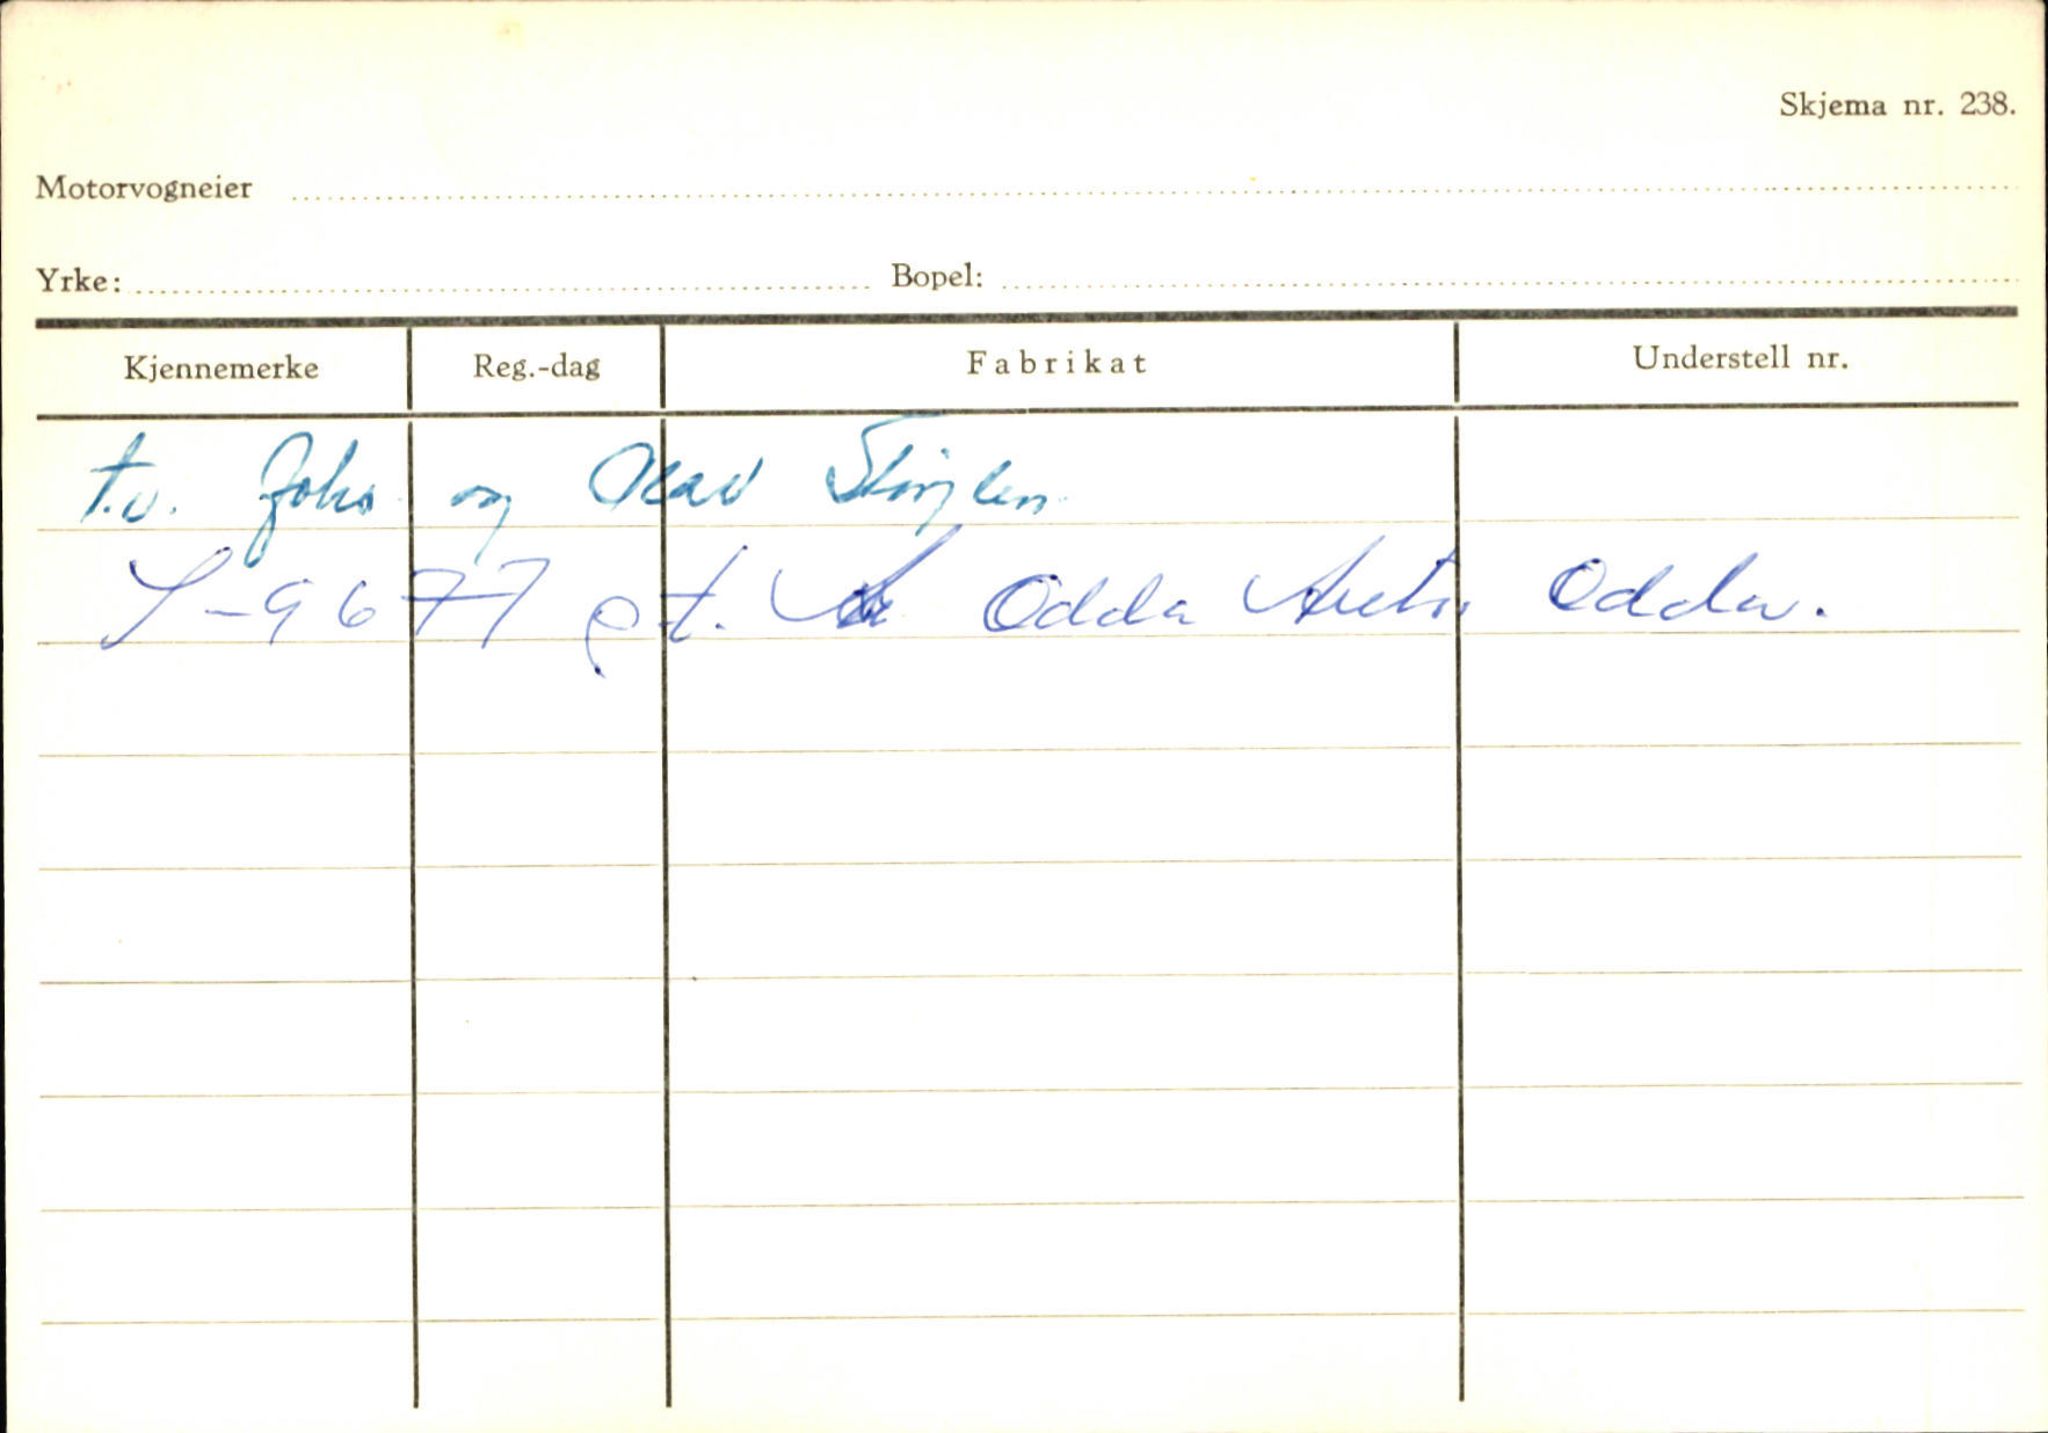 Skjema nr. 238.
Motorvogneier
Yrke: Bopel:
Kjennemerke Reg.-dag Fabrikat Understell nr.
t.v. Johs og Olav
S-9677 e t. Odda Auto, Odda.